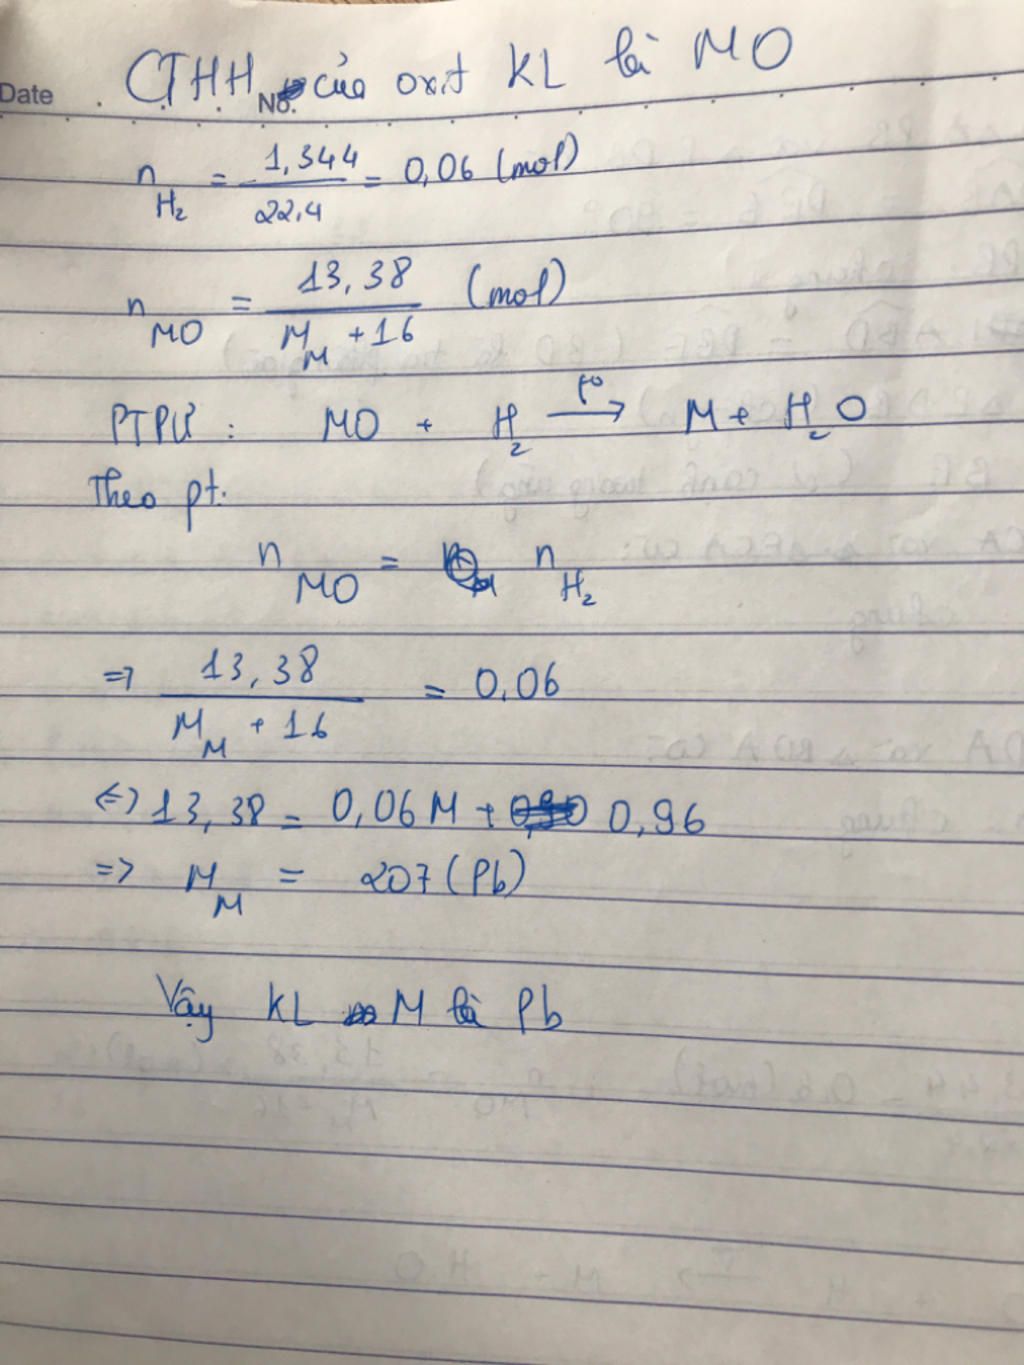 Date CTHH của oxit KL là MO
No.
n H₂ = 1,344 / 22,4 = 0,06 (mol)
n MO = 13,38 / M M + 16 (mol)
PTPƯ : MO + H₂ t° → M + H₂O
Theo pt:
n MO = n H₂
=> 13,38 / M M + 16 = 0,06
<=> 13,38 = 0,06 M + 0,96
=> M M = 207 (Pb)
Vậy KL M là Pb